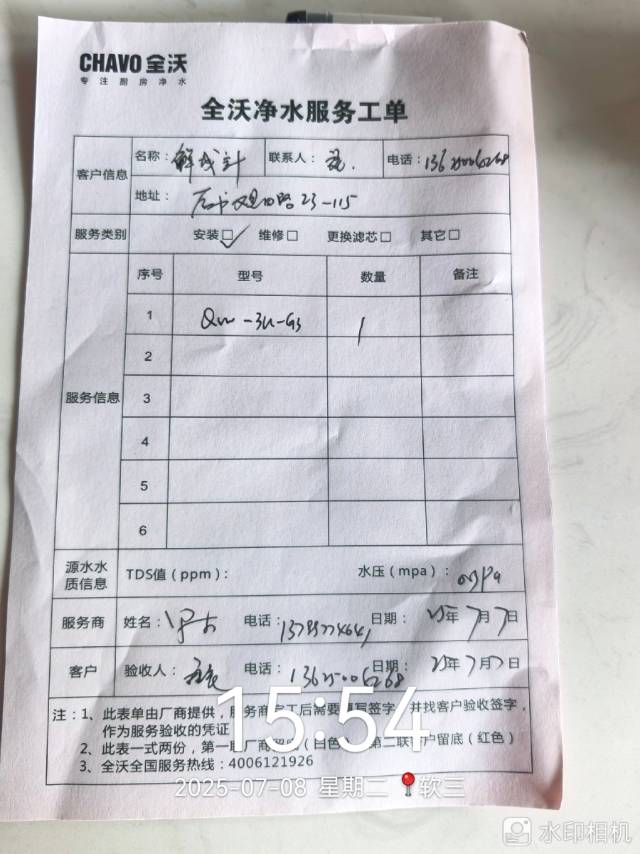 CHAVO 全沃
专注厨房净水
全沃净水服务工单
客户信息 名称： 联系人： 电话：13625006268
地址： 23-115
服务类别 安装□✓ 维修□ 更换滤芯□ 其它□
服务信息 序号 型号 数量 备注
1 1
2
3
4
5
6
源水水质信息 TDS值（ppm）： 水压（mpa）：
服务商 姓名： 电话： 日期：25年7月7日
客户 验收人： 电话：13625006268 日期：25年7月7日
注：1、此表单由厂商提供，服务商完工后需要填写签字，并找客户验收签字，
作为服务验收的凭证
2、此表一式两份，第一联厂商留底（白色）第二联客户留底（红色）
3、全沃全国服务热线：4006121926
15:54
2025-07-08 星期二 软三
水印相机